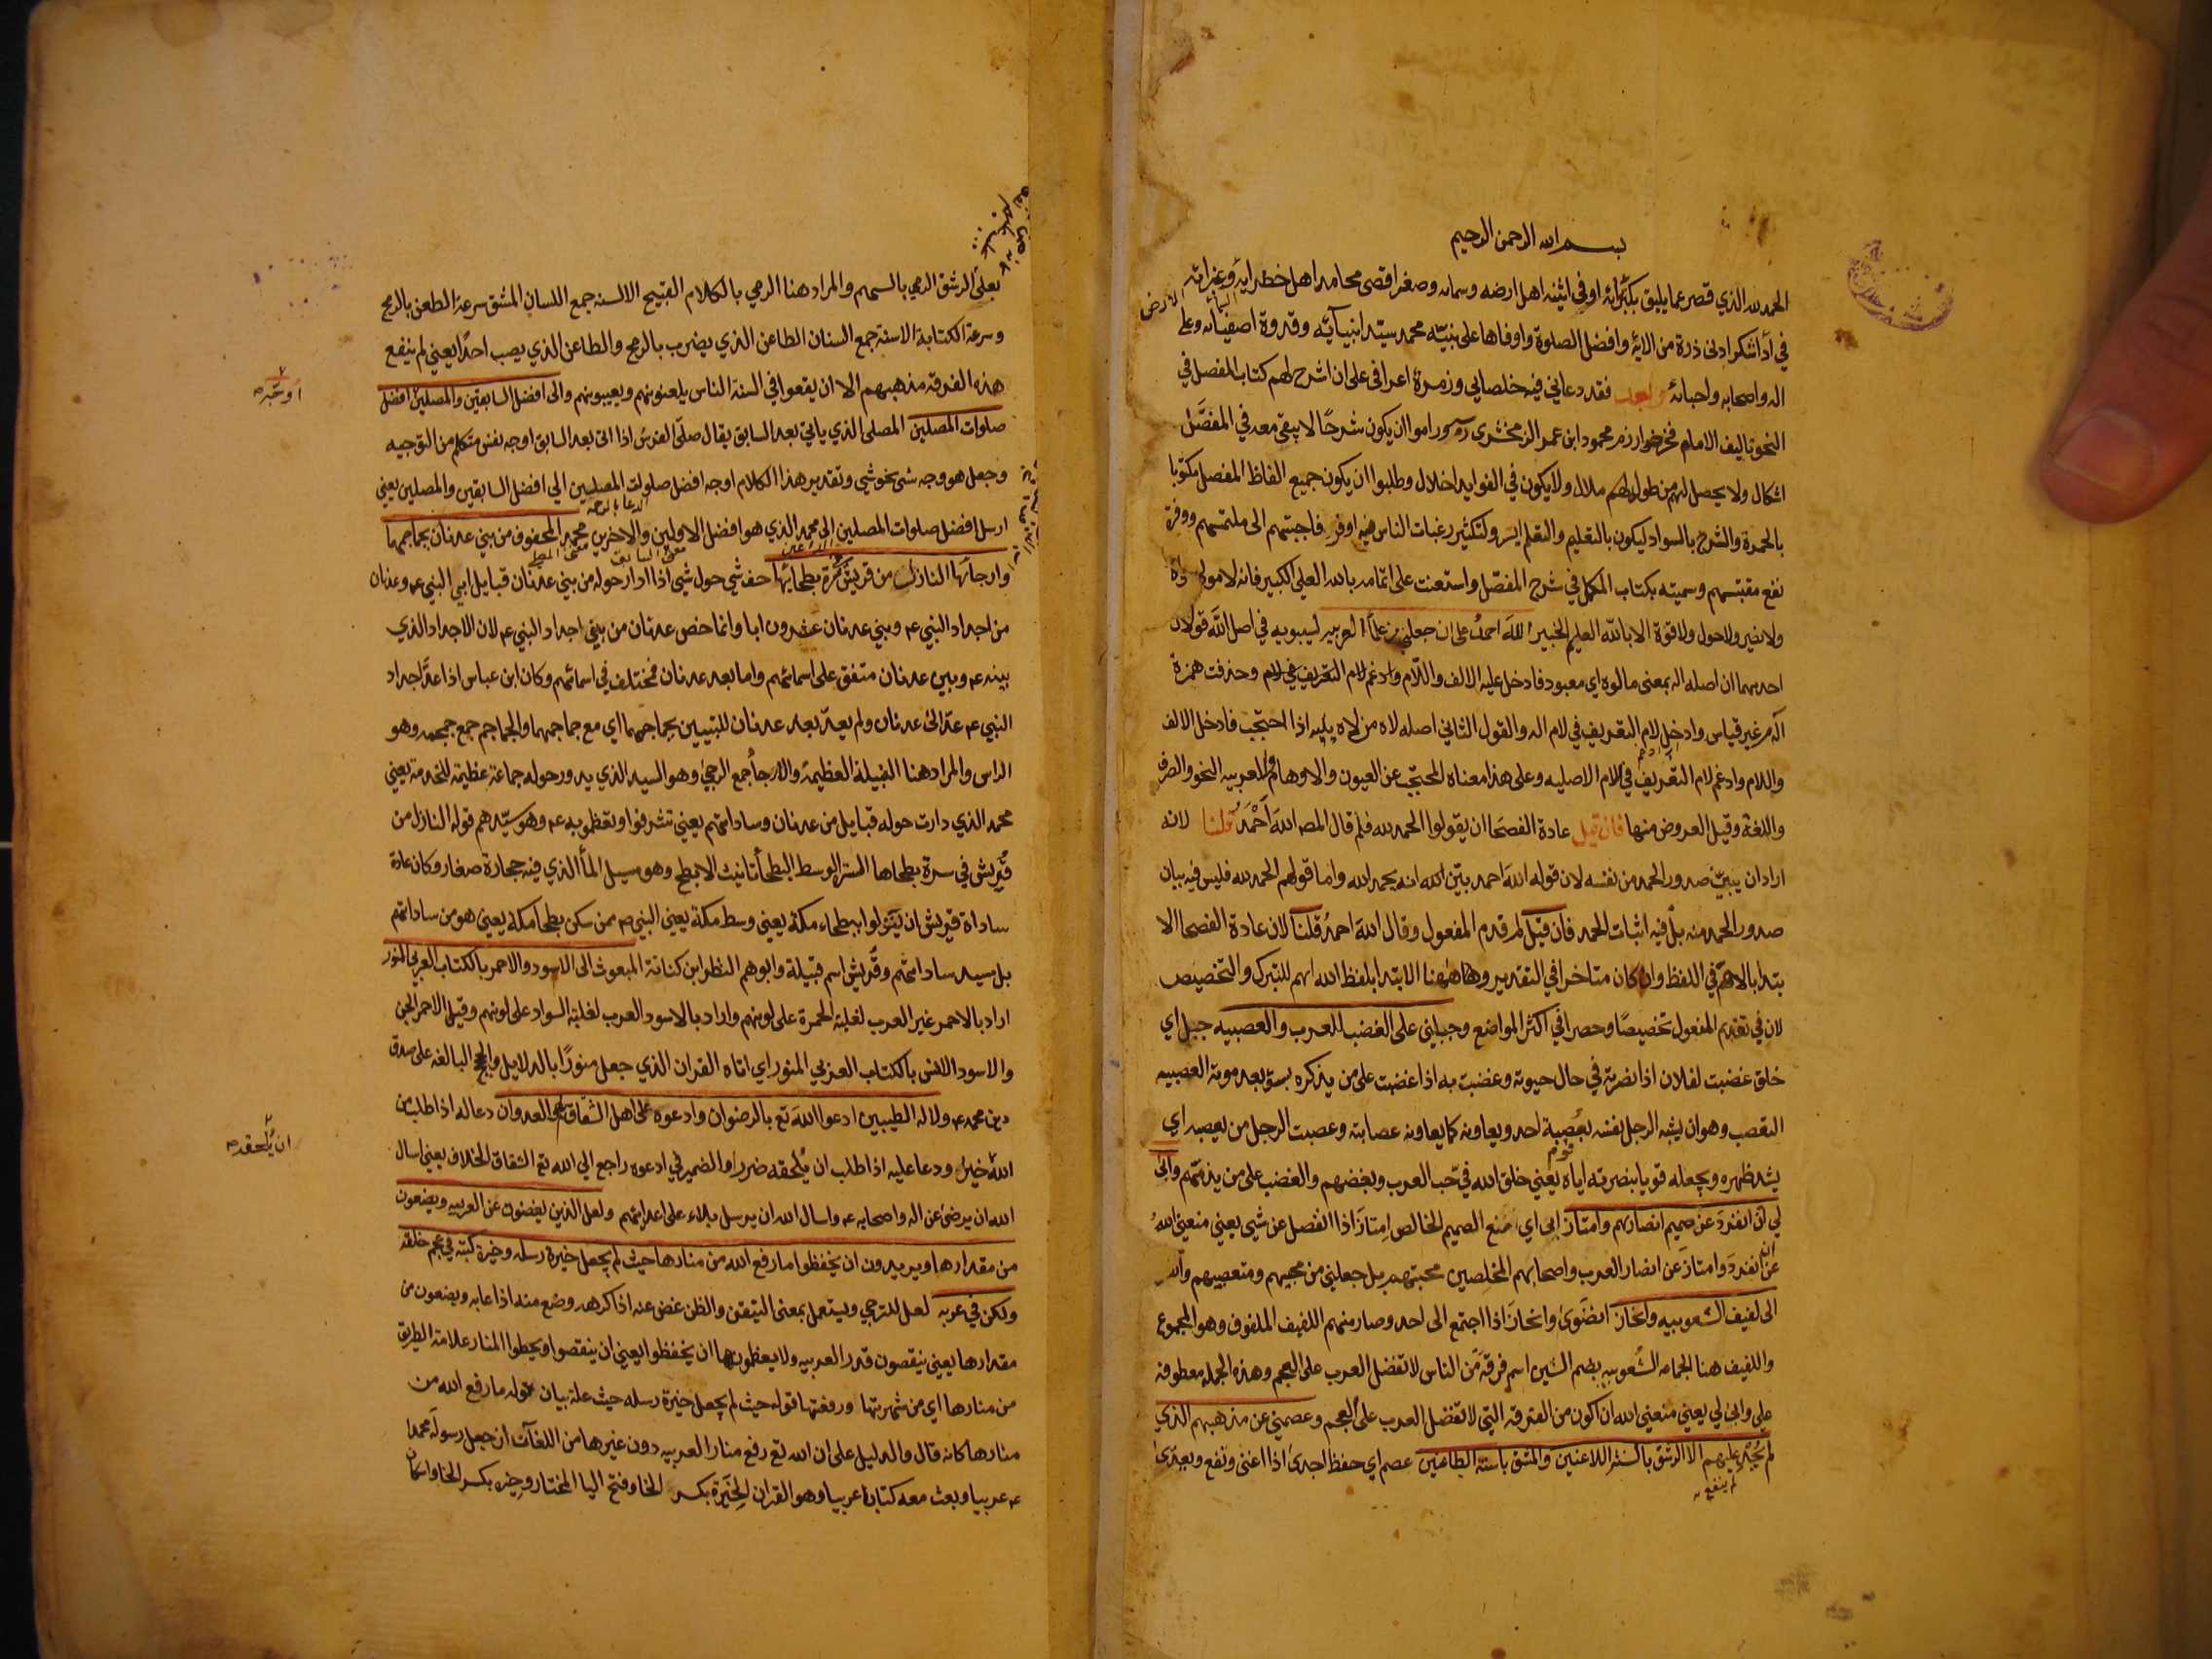 بسم الله الرحمن الرحيم
الحمد لله الذي قصر عما يليق بكبريائه اوفى اثنيه اهل ارضه وسمائه وصغر اقصى محامد اهل خطرايه وغبرائه
في ادآ شكر ادنى ذرة من الايه وافضل الصلوة واوفاها على نبيّه محمد سيّد انبيآيه وقدوة اصفيائه وعلى
اله واصحابه واحبائه وبعد فقد دعاني فيه خلصايي وزمرة اعرافى على ان اشرح لهم كتاب المفصل في
النحو تاليف الامام فخر خوارزم محمود ابن عمر الزمخشرى وراموا ان يكون شرحًا لا يبقى معه في المفصَّل
اشكال ولا يحصل لهم من طوله لهم ملال ولا يكون في الفوايد اخلال وطلبوا ان يكون جميع الفاظ المفصل مكتوبا
بالحمرة والشرح بالسواد ليكون بالتعليم والتعلم ايسر ولتكثير رغبات الناس فيه اوفر فاجبتهم الى ملتمسهم ووفرة
نفع مقتبسهم وسميته بكتاب المكمل في شرح المفصّل واستعنت على اتمامه بالله العلي الكبير فانه لا مولى سواه
ولا نصير ولا حول ولا قوة الا بالله العليم الخبير اللهَ احمدُ على ان جعلني من علمآ العربيه لسيبويه في اصل الله قولان
احدهما ان اصله اله بمعنى مالوه اي معبود فادخل عليه الالف واللّام وادغم لام التعريف في لام وحذفت همزة
آله من غير قياس وادخل لام التعريف في لام اله والقول الثاني اصله لاه من لاه يليه اذا احتجب فادخل الالف
واللام وادغم لام التعريف في اللام الاصليه وعلى هذا معناه المحتجب عن العيون والاوهام والعربيه النحو والصرف
واللغة وقيل العروض منها فان قيل عادة الفصحا ان يقولوا الحمد لله فلم قال المصه اللهَ اَحْمَدُ قُلنا لانه
اراد ان يبيّن صدور الحمد من نفسه لان قوله اللهَ احمد يبيّن الله انه يحمد الله واما قولهم الحمد لله فليس فيه بيان
صدور الحمد منه بل فيه اثبات الحمد فان قيل لم قدم المفعول وقال اللهَ احمدُ قلنا لان عادة الفصحا الا
بتدا بالاهمّ في اللفظ وان كان متاخرا في التقدير وهاههنا الابتدا بلفظ الله اهم للتبرك والتخصيص
لان في تقديم المفعول تخصيصًا وحصرا في اكثر المواضع وجبلني على الغضب للعرب والعصبيه جبل اي
خلق غضبت لفلان اذا نصرته في حال حيوته وغضبت به اذا غضبت على من يذكره بسوء بعد موته العصبيه
التعصب وهو ان يشبه الرجل نفسه بعُصبة احد ويعاونه كما يعاونه عصابته وعصبت الرجل من بعصبه اي
يشد ظهره ويجعله قويا بنصرته اياه يعني خلق الله فيّ حب العرب وبغضهم والغضب على من يذمّهم وابى
لي ان انفردَ عن صميم انصارهم وامتازَ ابى اي منع الصميم الخالص امتازَ اذا انفصل عن شي يعني منعني اللهُ
عن انفرد وامتازَ عن انصار العرب واصحابهم المخلصين محبتهم بل جعلني من محبيهم ومتعصبيهم
الى لفيف الشعوبيه وانحاز انضَوىَ وانحازَ اذا اجتمع الى احد وصار منهم اللفيف الملفوف وهو المجموع
واللفيف هنا الجماعه الشُعوبيه بضم الشين اسم فرقة من الناس لا تفضل العرب على العجم وهذه الجمله معطوفه
على وابى لي يعني منعني الله ان اكون من الفرقه التي لا تفضل العرب على العجم وعصمني عن مذهبهم الذي
لم يُجْدِ عليهم الا الرشق بالسنة اللاعنين والمشق باسنة الطاعنين عصم اي حفظ اجدى اذا اغنى ونفع ويعدى
لم ينفع
بعلى الرشق الرمي بالسهم والمراد هنا الرمي بالكلام القبيح الالسنه جمع اللسان المشق سرعة الطعن بالرمح
وسرعة الكتابة الاسنة جمع السنان الطاعن الذي يضرب بالرمح والطاعن الذي يعيب احدًا يعني لم ينفع
هذه الفرقه مذهبهم الا ان يقعوا في السنة الناس يلعنونهم ويعيبونهم والى افضل السابقين والمصلين افضل
صلوات المصلين المصلى الذي ياتي بعد السابق يقال صلّى الفرسُ اذا اتى بعد السابق اوجه نفس متكلم من التوجيه
وجعل هو وجه شى نحو شي وتقدير هذا الكلام اوجه افضل صلوات المصليين الى افضل السابقين والمصلين يعني
ارسل افضل صلوات المصلين الى محمد الذي هو افضل الاولين والاخرين محمد المحفوف من بني عدنان بجماجمها
وارجائها النازل من قريش في سرة بطحائها حف شي حول شي اذا دار حوله من بني عدنان قبايل ابي النبي عم وعدنان
من اجداد النبي عم وبني عدنان عشرون ابا وانما خص عدنان من بين اجداد النبي عم لان الاجداد الذي
بينه عم وبين عدنان متفق على اسمائهم واما بعد عدنان فمختلف في اسمائهم وكان ابن عباس اذا عدّ اجداد
النبي عم عدّ الى عدنان ولم يعدّ بعد عدنان للتبيين بجماجمها اي مع جماجمها والجماجم جمع جمجمه وهو
الراس والمراد هنا القبيلة العظيمة والارجا جمع الرجي وهو السيد الذي يدور حوله جماعة عظيمة للخدمة يعني
محمد الذي دارت حوله قبايل من عدنان وساداتهم يعني تشرفوا وتعظموا به عم وهو سيّدهم قوله النازل من
قُريش في سرة بطحاها السرة الوسط البطحا تانيث الابطح وهو مسيل المأ الذي فيه حجارة صغار وكان عادة
ساداة قريش ان يَنزلوا ببطحاء مكة يعني وسط مكة يعني النبي عم ممن سكن بطحا مكة يعني هو من ساداتهم
بل سيد ساداتهم وقُريش اسم قبيلة وابوهم النظر ابن كنانة المبعوث الى الاسود والاحمر بالكتاب العربي المنور
اراد بالاحمر غير العرب لغلبة الحمرة على لونهم واراد بالاسود العرب لغلبة السواد على لونهم وقيل الاحمر الجن
والاسود الانس بالكتاب العربي المنور اي اتاه القران الذي جعل منورًا بالدلايل والحجج البالغه على صدق
دين محمد عم ولاله الطيبين ادعوا اللهَ تع بالرضوان وادعوه على اهل الشقاق والعدوان دعا له اذا طلب من
اللهُ خيرًا ودعا عليه اذا طلب ان يُلحقه ضررا والضمير في ادعوه راجع الى الله تع الشقاق الخلاف يعني اسال
الله ان يرضى عن اله واصحابه عم واسال الله ان يرسل بلاء على اعدائهم ولعل الذين يغضون عن العربيه ويضعون
من مقدارها ويريدون ان يخفظوا ما رفع الله من منارها حيث لم يجعل خيرة رسله وخيرة كتبه في عجم خلقه
ولكن في عربه لعل للترجي ويستعمل بمعنى التيقن والظن غض عنه اذا كرهه وضع منه اذا عابه ويضعون من
مقدارها يعني ينقصون قدر العربيه ولا يعظمونها ان يخفظوا يعني ان ينقصوا ويحطوا المنار علامة الطريق
من منارها اي من شهرتها ورفعتها قوله حيث لم يجعل خيرة رسله حيث علة بيان قوله ما رفع الله من
منارها كانه قال والدليل على ان الله تع رفع منار العربيه دون غيرها من اللغات ان جعل رسوله محمدا
عم عربيا وبعث معه كتابا عربيا وهو القران الخِيَرة بكسر الخا وفتح اليا المختار وخِيْره بكسر الخا واسكان
اوجه
ان يُلحقه